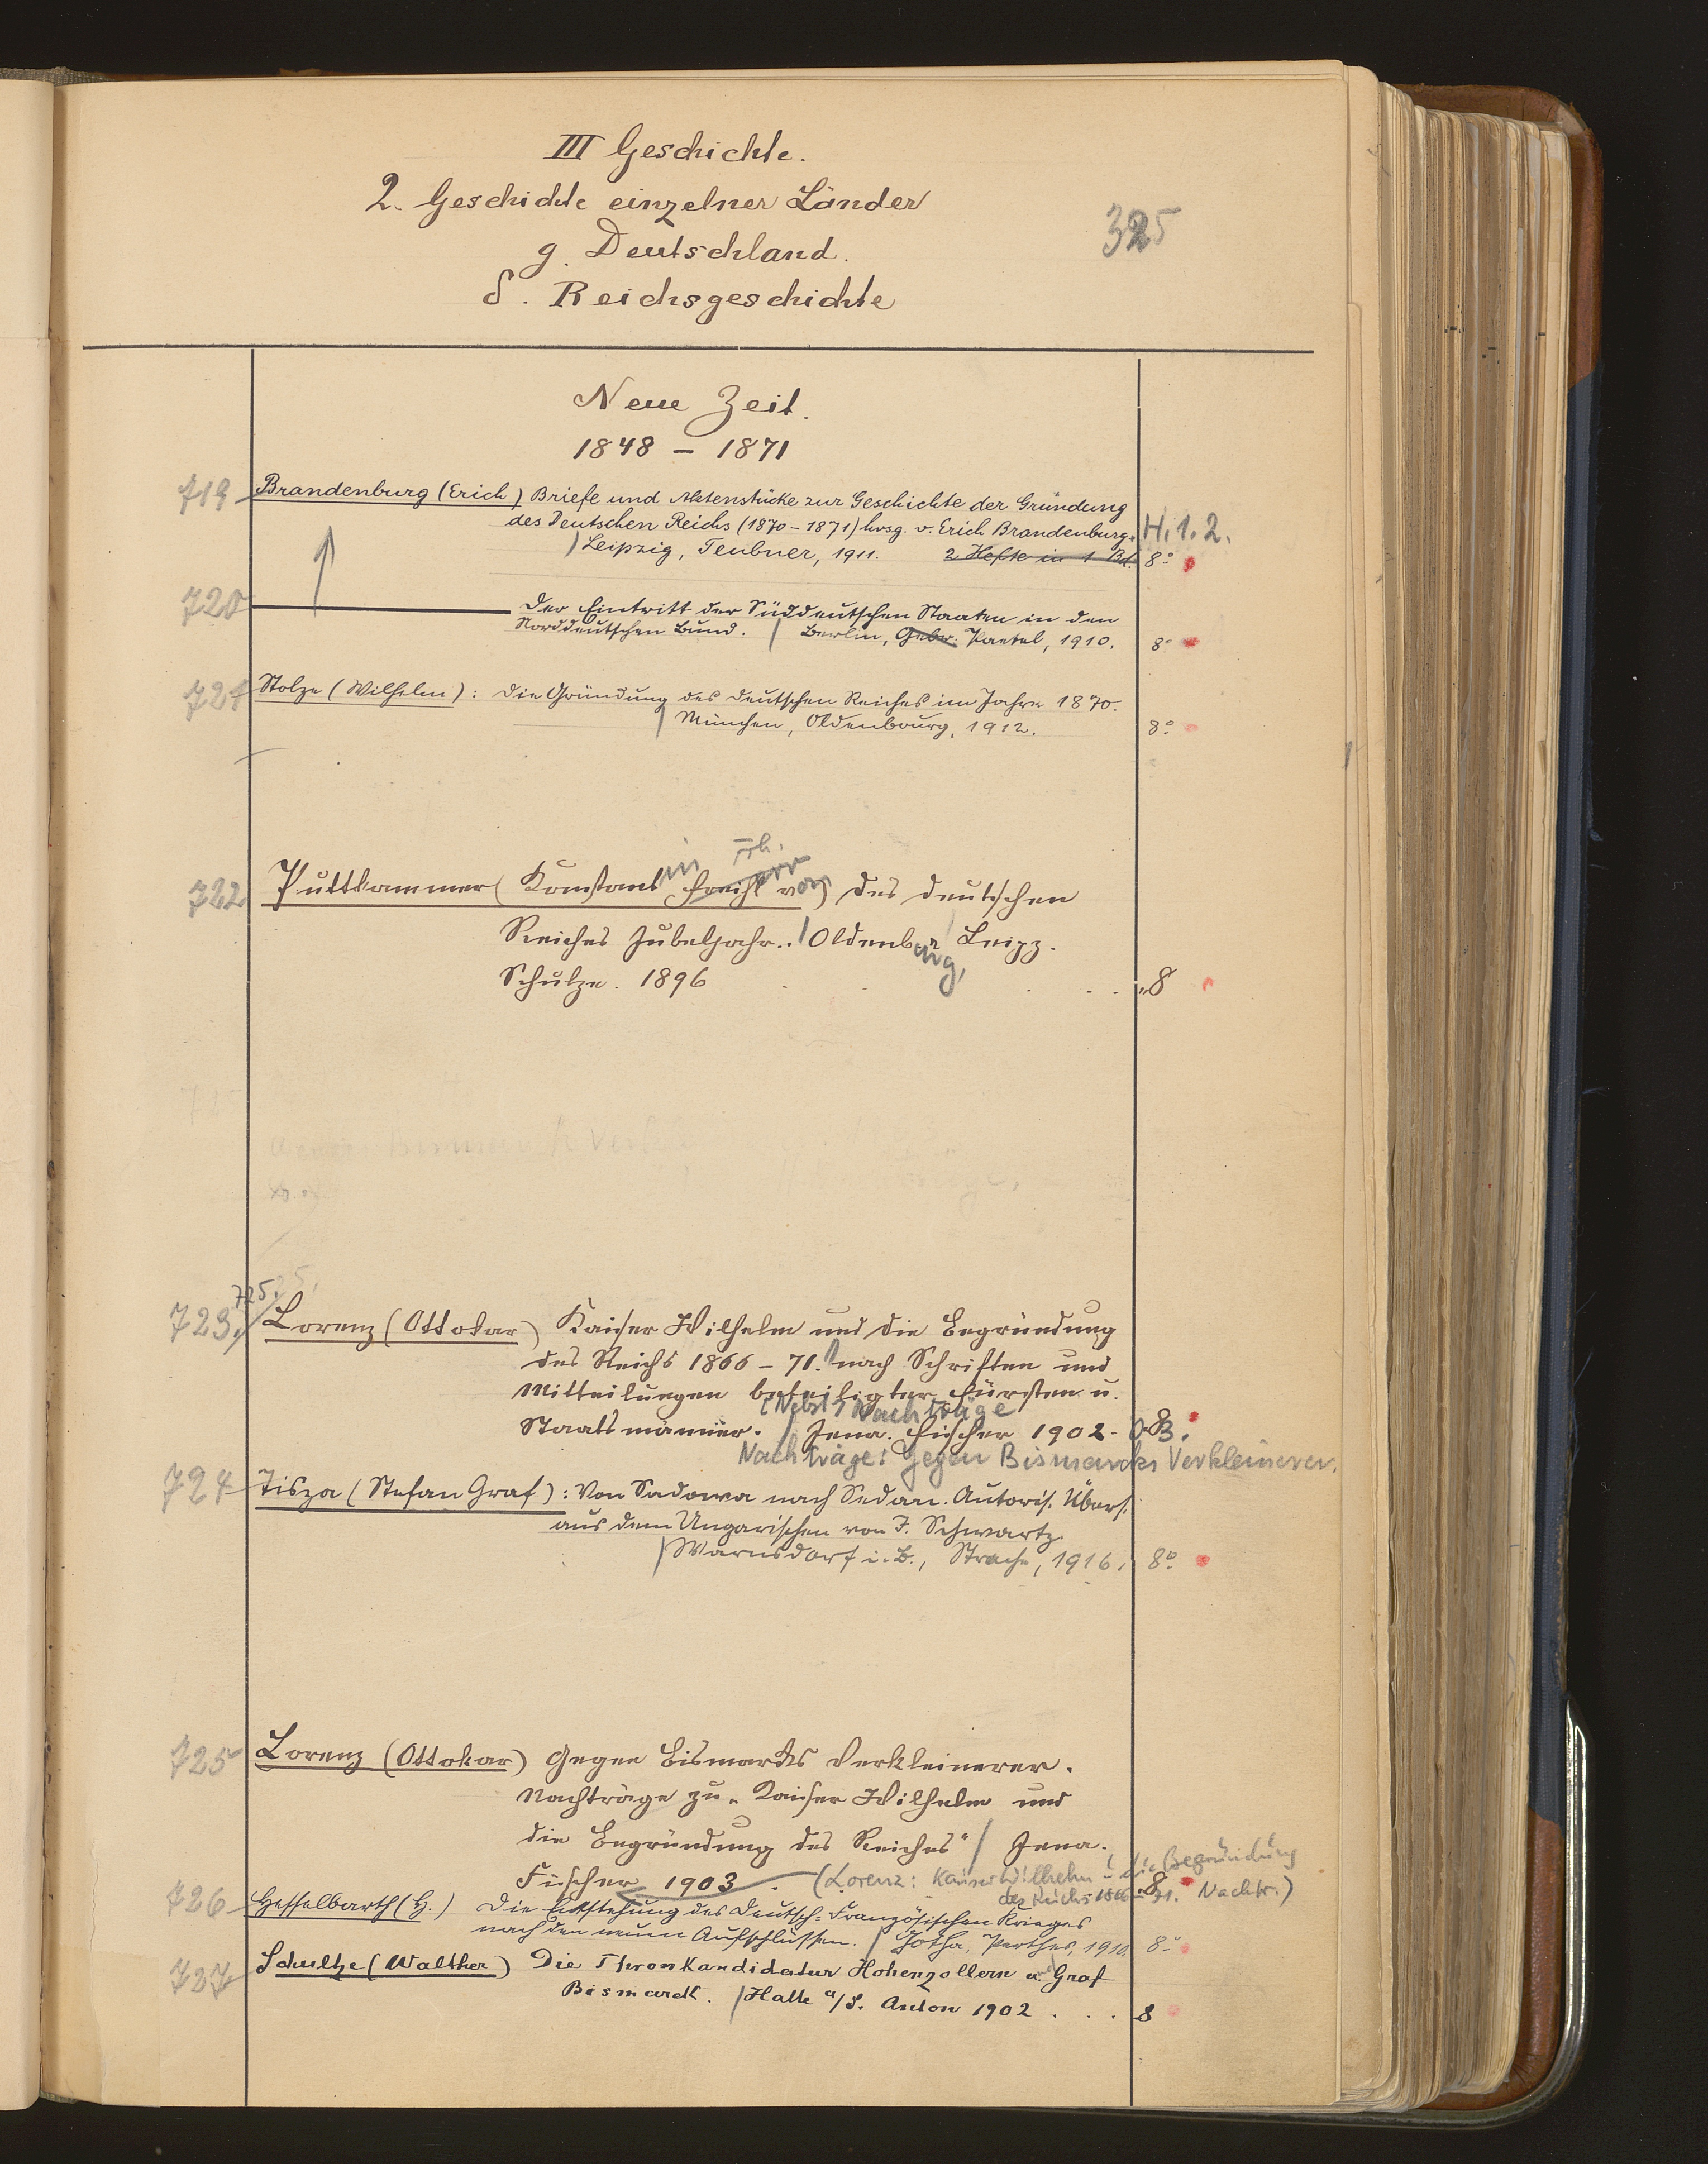 III Geschichte.
2. Geschichte einzelner Länder
g. Deutschland.
δ. Reichsgeschichte
325
Neue Zeit.
1848 – 1871
719 Brandenburg (Erich) Briefe und Aktenstücke zur Geschichte der Gründung
des Deutschen Reichs (1870–1871) hrsg. v. Erich Brandenburg. H. 1. 2.
/ Leipzig, Teubner, 1911. 2 Hefte in 1 Bd. 8°
720 ——— Der Eintritt der Süddeutschen Staaten in den
Norddeutschen Bund. / Berlin, Gebr. Paetel, 1910. 8°
721 Stolze (Wilhelm): Die Gründung des deutschen Reiches im Jahre 1870.
/ München, Oldenbourg, 1912. 8°
Frh.
722 Puttkammer (Konstantin von) Des deutschen
Reiches Jubeljahr. / Oldenburg, Leipz.
Schulze. 1896 . . . . 8
725.
723. Lorenz (Ottokar) Kaiser Wilhelm und die Begründung
des Reichs 1866–71. nach Schriften und
Mitteilungen beteiligter Fürsten u.
[Nebst] Nachträge
Staatsmänner. / Jena. Fischer 1902. 8
Nachträge: Gegen Bismarcks Verkleinerer.
724 Tisza (Stefan Graf): Von Sadowa nach Sedan. Autoris. Übers.
aus dem Ungarischen von J. Schwartz
/ Warnsdorf i. B., Strache, 1916. 8°
725 Lorenz (Ottokar) Gegen Bismarcks Verkleinerer.
Nachträge zu „Kaiser Wilhelm und
die Begründung des Reiches" / Jena.
Fischer 1903. 8
(Lorenz: Kaiser Wilhelm u. die Begründung
des Reichs 1866–71. Nachtr.)
726 Hesselbarth (H.) Die Entstehung des Deutsch-Französischen Krieges
nach den neuen Aufschlüssen. / Gotha, Perthes, 1910. 8°
727 Schultze (Walther) Die Thronkandidatur Hohenzollern u. Graf
Bismarck. / Halle a/S. Anton 1902 . . . 8